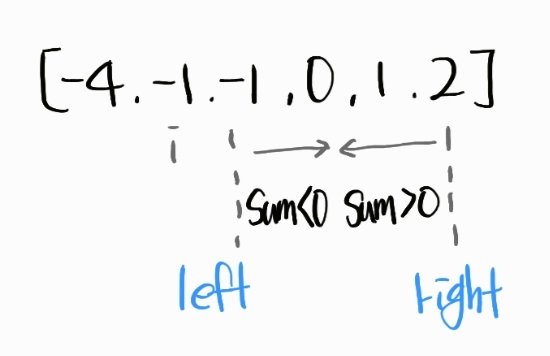 [-4.-1.-1,0,1.2]
i
Sum<0 Sum>0
left right